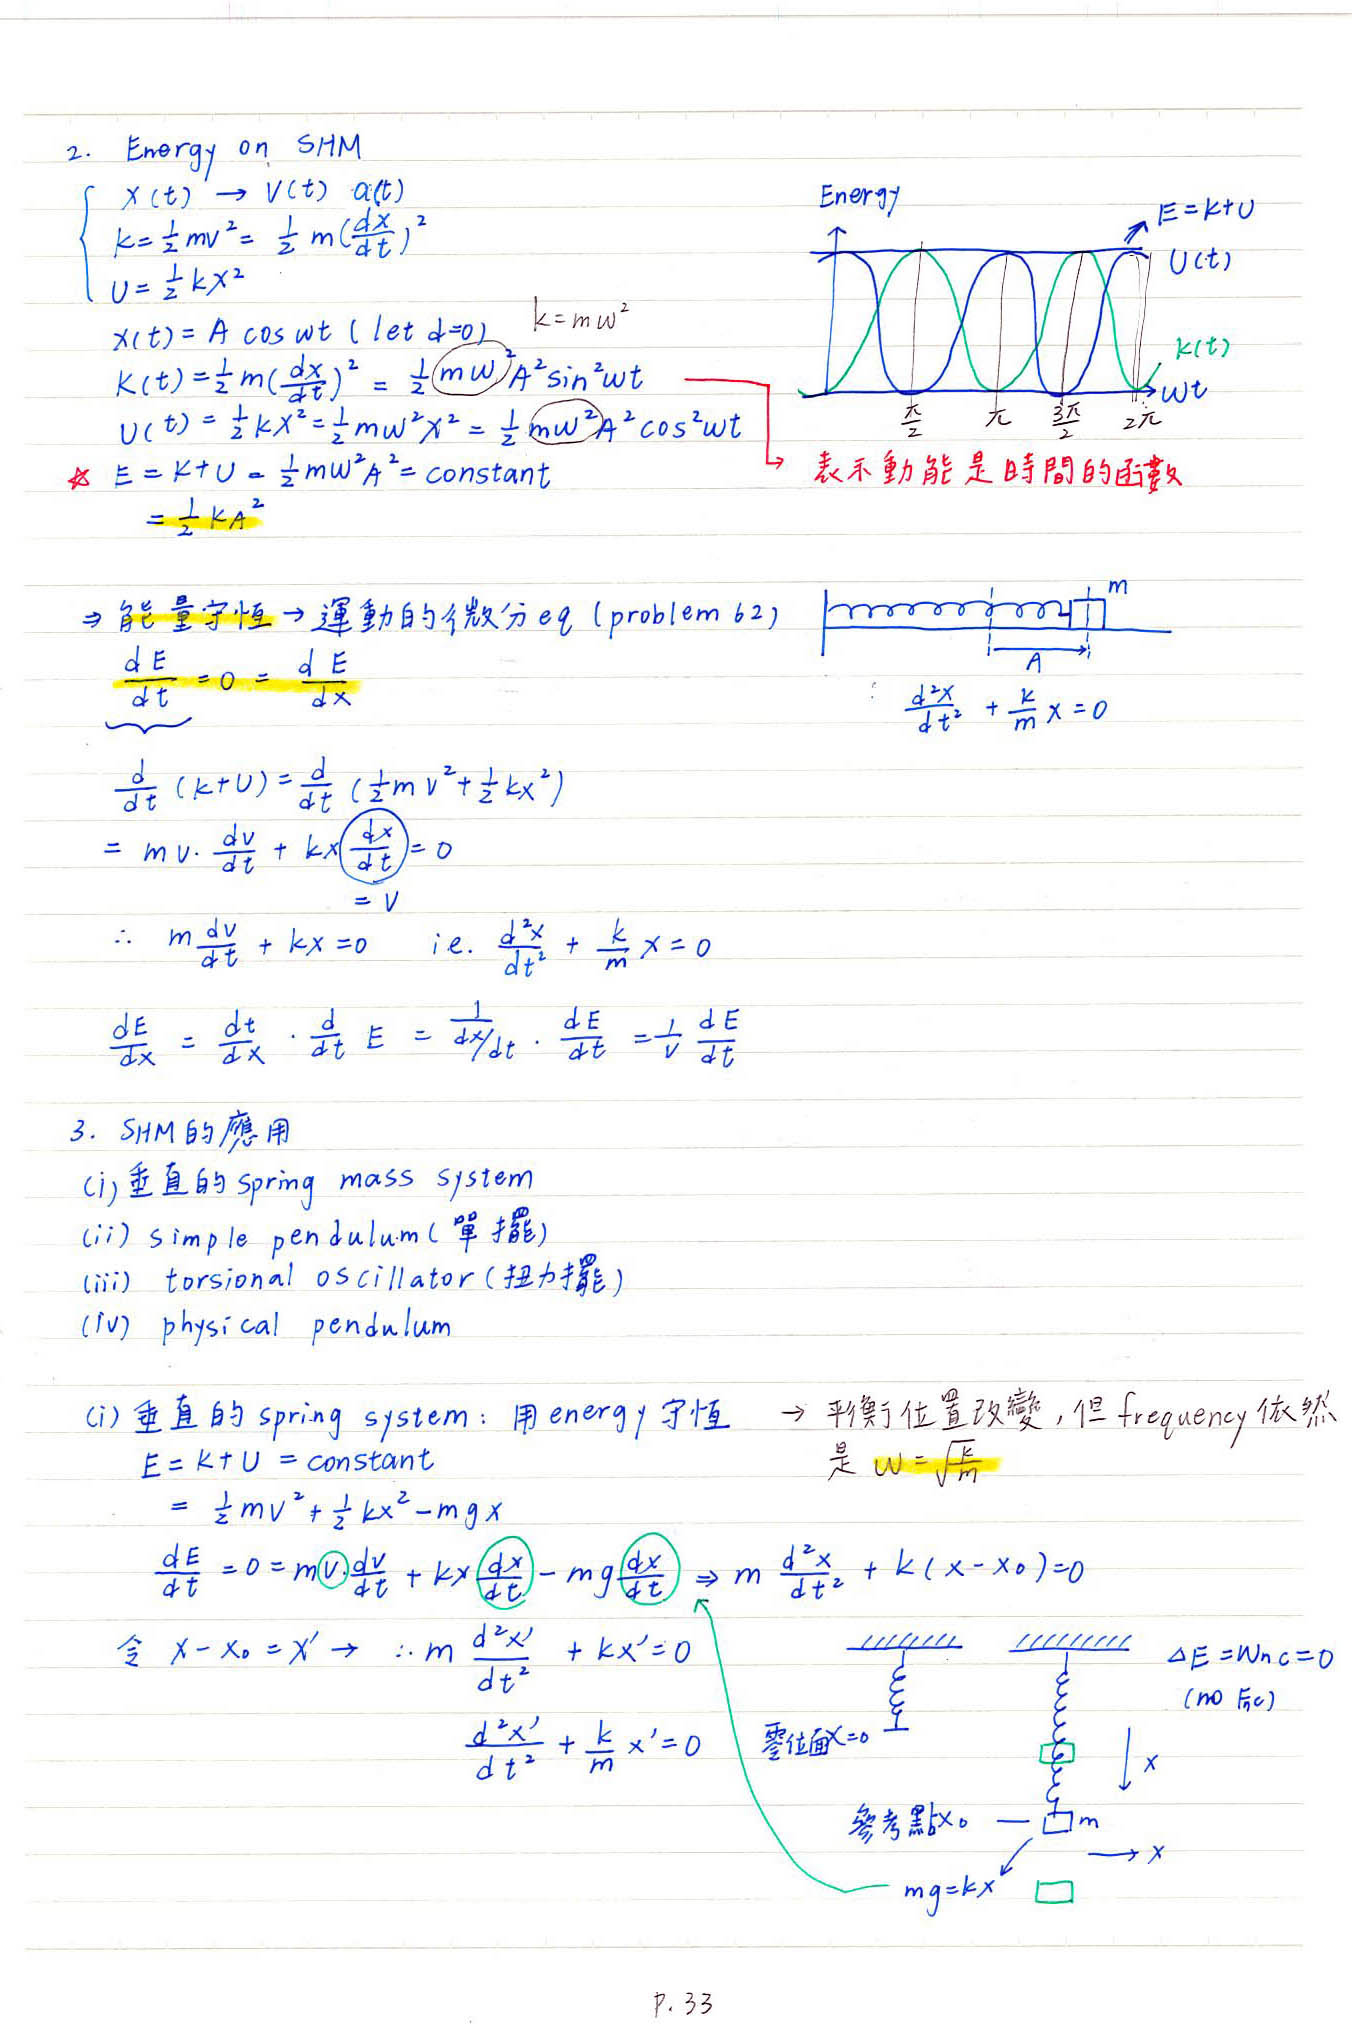 2. Energy on SHM
x(t) → v(t) a(t)
K = 1/2 mv² = 1/2 m(dx/dt)²
U = 1/2 kx²
x(t) = A cos ωt (let d=0)
k = mω²
K(t) = 1/2 m(dx/dt)² = 1/2 mω²A² sin²ωt
U(t) = 1/2 kx² = 1/2 mω²x² = 1/2 mω²A² cos²ωt
☆ E = K+U = 1/2 mω²A² = constant
= 1/2 kA²
Energy
E = K+U
U(t)
K(t)
ωt
π/2 π 3π/2 2π
→ 表示動能是時間的函數
⇒ 能量守恒 → 運動的微分eq (problem 62)
dE/dt = 0 = dE/dx
m
A
d²x/dt² + k/m x = 0
d/dt (K+U) = d/dt (1/2 mv² + 1/2 kx²)
= mv · dv/dt + kx dx/dt = 0
= v
∴ m dv/dt + kx = 0 i.e. d²x/dt² + k/m x = 0
dE/dx = dt/dx · d/dt E = 1/(dx/dt) · dE/dt = 1/v dE/dt
3. SHM的應用
(i) 垂直的spring mass system
(ii) simple pendulum (單擺)
(iii) torsional oscillator (扭力擺)
(iv) physical pendulum
(i) 垂直的spring system: 用energy守恒
→ 平衡位置改變, 但frequency依然
是 ω = √(k/m)
E = K+U = constant
= 1/2 mv² + 1/2 kx² - mgx
dE/dt = 0 = mv · dv/dt + kx dx/dt - mg dx/dt ⇒ m d²x/dt² + k(x-x₀) = 0
令 x-x₀ = x' → ∴ m d²x'/dt² + kx' = 0
d²x'/dt² + k/m x' = 0
ΔE = Wnc = 0
(no Fnc)
零位面x=0
x
參考點x₀ — m
→ x
mg = kx
P. 33